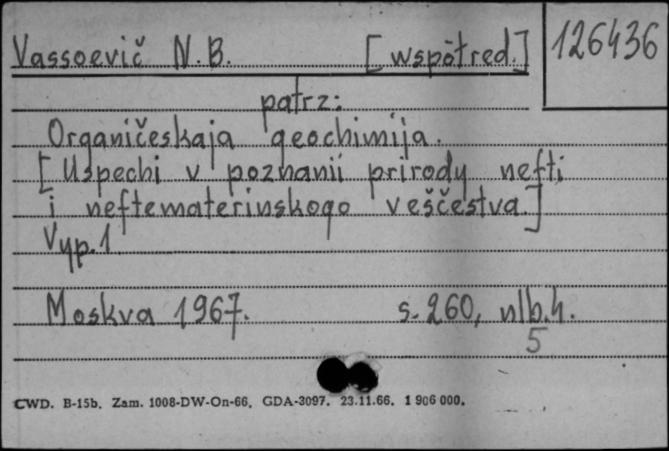 Vassoevič N.B. [współred.] 126436
patrz:
Organičeskaja geochimija.
[Uspechi v poznanii prirody nefti
i neftematerinskogo veščestva.]
Vyp.1
Moskva 1967. s. 260, nlb.4.
5
CWD. B-15b. Zam. 1008-DW-On-66. GDA-3097. 23.11.66. 1 906 000.